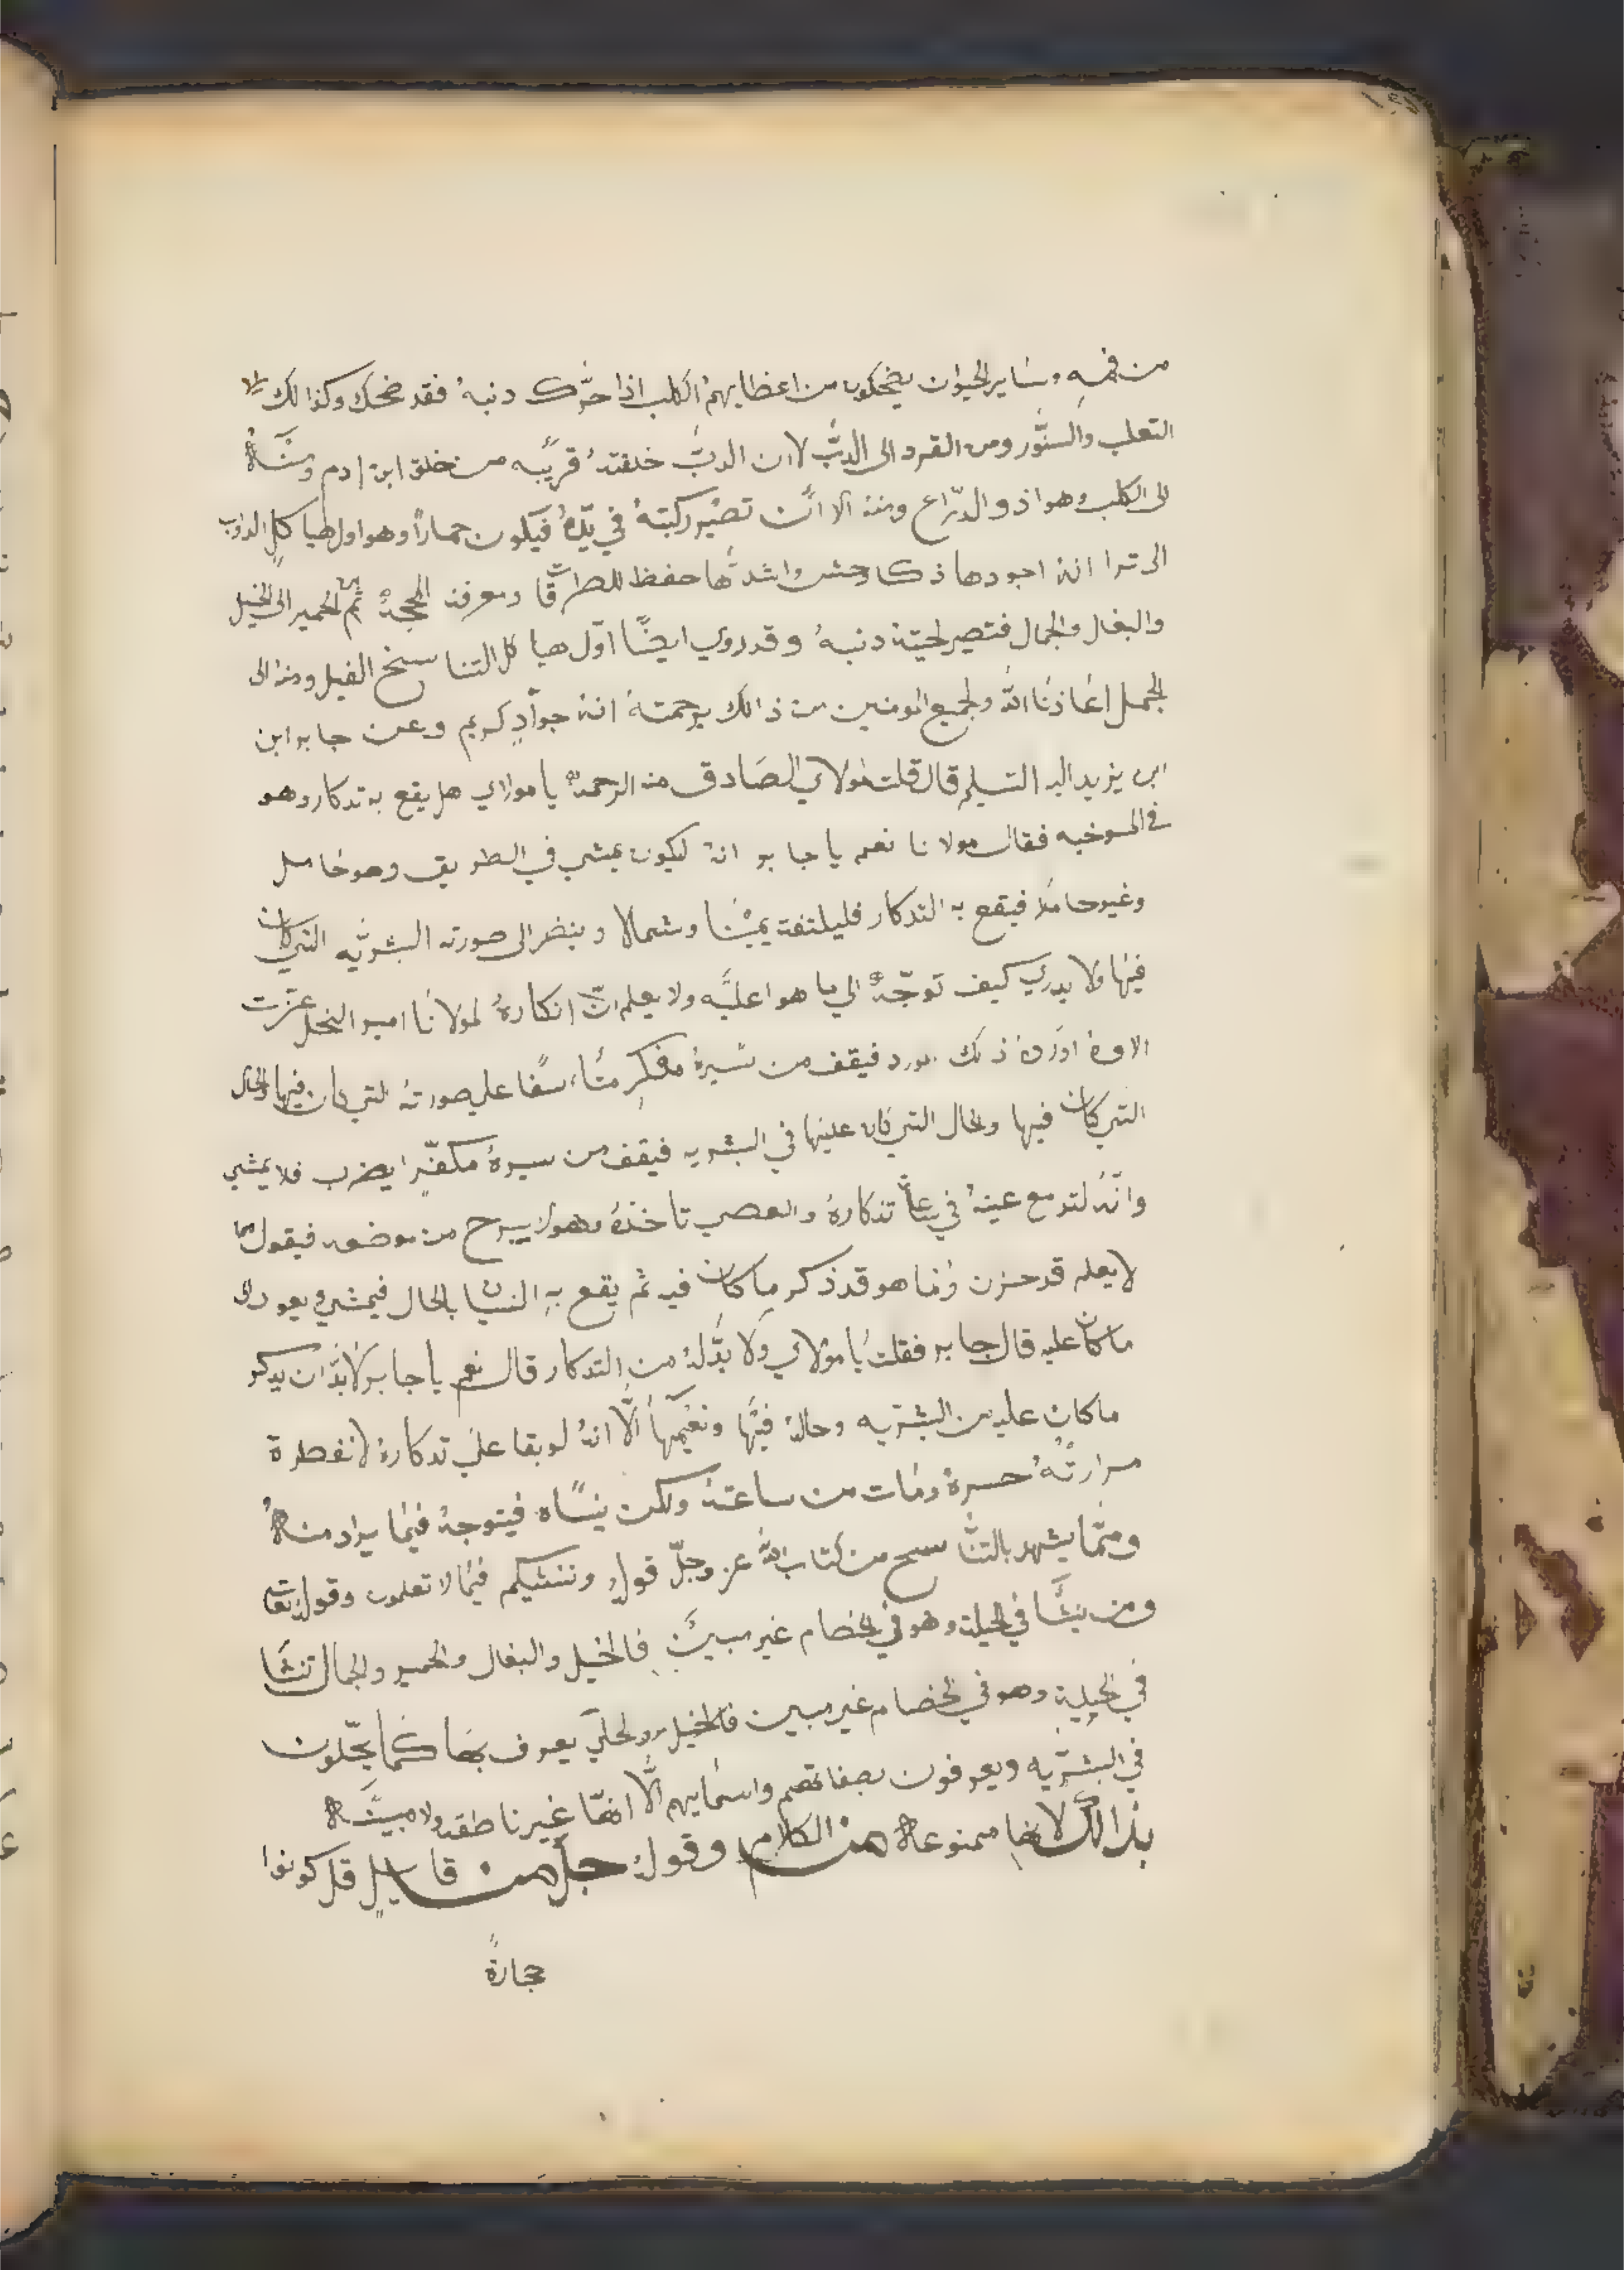 من فمه وساير الحيوان يضحكون من اعظايهم الكلب اذا حرّك دنبه فقد ضحك وكذالك
التعلب والسنّور ومن القرد الى الدبّ لاان الدبّ خلقته قريبه من خلق ابن ادم ومنه
الى الكلب وهو اذو الدّراع ومنه الا ان تصير ركبته في يدّه فيكون حمارًا وهو اول هيا كل الدواب
الى ترا انه اجودها واشدّها حفظ للطرقا ومعرفة المحجه ثم الحمير الى الخيل
والبغال والجمال فتصير لحيته دنبه وقد روي ايضًا اوّل هيا كل التنا سخ الفيل ومنه الى
الجمل اعاذنا الله ولجميع المومنين من ذالك برحمته انه جوادٍ كريم وعن جابر ابن
ابن يزيد اليه التسليم قال قلت لمولاي الصادق منه الرحمه يا مولاي هل يقع به تدكار وهو
في المسوخيه فقال مولانا نعم يا جابر انه ليكون يمشي في الطريق وهو حامل
وغير حامل فيقع به التدكار فليلتفت يمينًا وشمالا وينضر الى صورته البشريّه التي كان
فيها ولا يدري كيف توجّه الى ما هو اعليّه ولا يعلم انّ انكاره لمولانا امير النحل عزّت
ذلك فيقف من سيره مفكرٍ متاسفًا على صورته التي كان فيها والحال
التي كان فيها والحال التي كان عليها في البشريه فيقف من سيره يضرب فلا يمشي
وانّه لتدمع عينه في تدكاره والعصي تاخذه وهو لا يبرح من موضعه فيقول
لا يعلم قد حزن وانما هو قد ذكر ما كان فيه ثم يقع به النسيان بالحال فيمشي ويعود الى
ما كان عليه قال جابر فقلت يا مولاي ولا بدّله من التدكار قال نعم يا جابر لا بدّ ان يدكر
ما كان عليه من البشريّه وحاله فيها ونعيمها الّا انه لو بقا على تدكاره لانفطرة
مرارته حسرة ومات من ساعته ولكن ينساه فيتوجه فيما يراد منه
وممّا يشهد بالتنا سخ من كتاب الله عز وجلّ قوله وننشيكم فيما لا تعلمون وقوله تعا
ومن ينشا في الحيلة وهو في الخصام غير مبين فالخيل والبغال والحمير والجمال تنشا
في الحيلية وهو في الخصام غير مبين فالخيل والحلي يعرف بها كما يحلّون
في البشريّه ويعرفون بصفاتهم واسمايهم الّا انهّا غير ناطقه ولا مبينه
بذالك لانها ممنوعاه من الكلام وقوله جلّ من قايلٍ قل كونوا
حجارةً